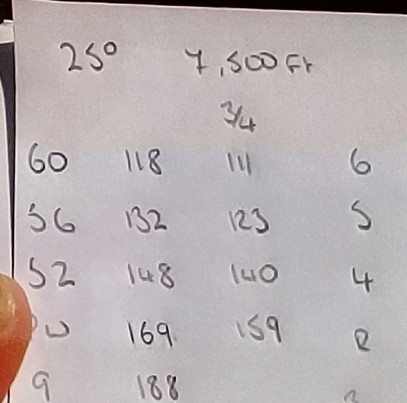 25° 7,500 Ft
3/4
60 118 111 6
56 132 123 5
52 148 140 4
PW 169 159 R
9 188